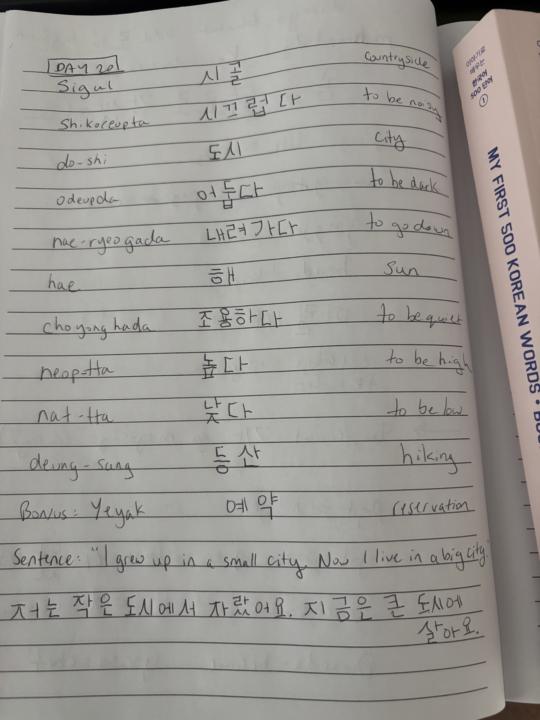 DAY 20
Sigul 시골 Countryside
Shikoreupta 시끄럽다 to be noisy
do-shi 도시 City
odeupda 어둡다 to be dark
nae-ryeogada 내려가다 to go down
hae 해 Sun
choyonghada 조용하다 to be quiet
neop-tta 높다 to be high
nat-tta 낮다 to be low
deung-sang 등산 hiking
Bonus: Yeyak 예약 reservation
Sentence: "I grew up in a small city. Now I live in a big city"
저는 작은 도시에서 자랐어요. 지금은 큰 도시에
살아요.
이야기로
배우는
한국어
500 단어
①
MY FIRST 500 KOREAN WORDS •